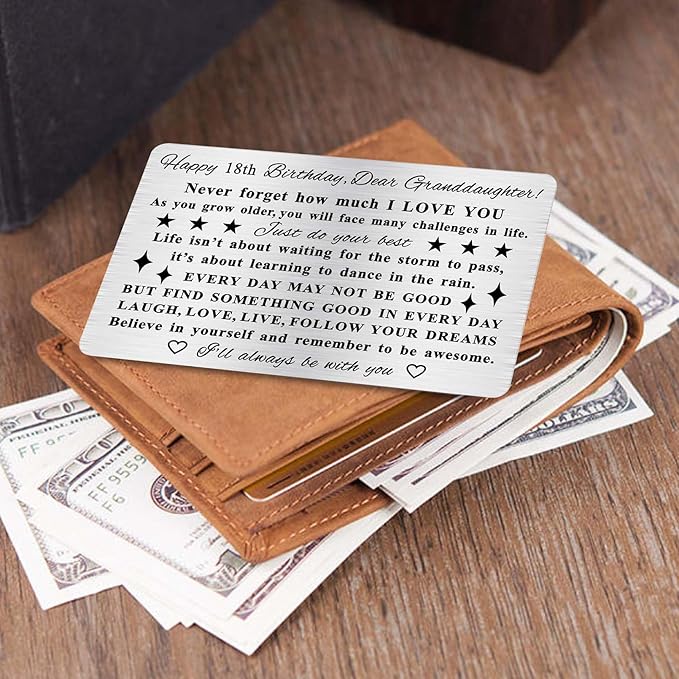 Happy 18th Birthday, Dear Granddaughter!
Never forget how much I LOVE YOU
As you grow older, you will face many challenges in life.
Just do your best
Life isn't about waiting for the storm to pass,
it's about learning to dance in the rain.
EVERY DAY MAY NOT BE GOOD
BUT FIND SOMETHING GOOD IN EVERY DAY
LAUGH, LOVE, LIVE, FOLLOW YOUR DREAMS
Believe in yourself and remember to be awesome.
I'll always be with you
FF
F6